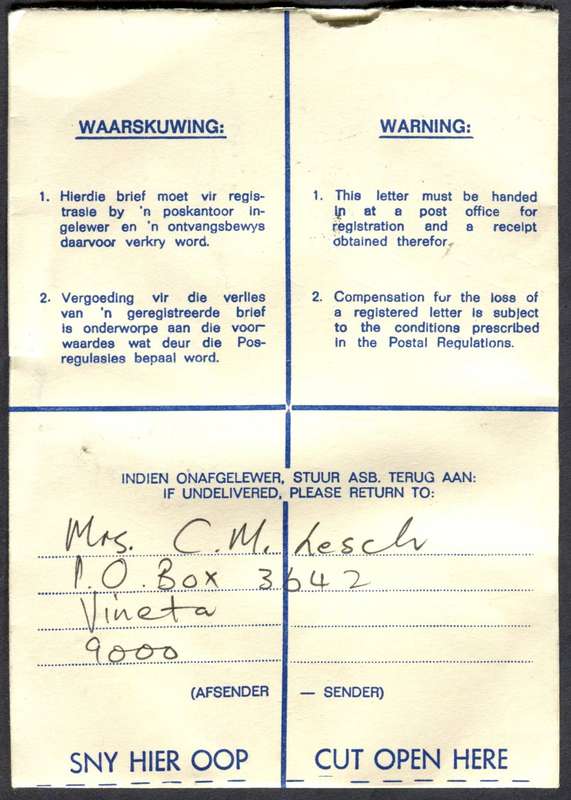 WAARSKUWING:
1. Hierdie brief moet vir regis-
trasie by 'n poskantoor in-
gelewer en 'n ontvangsbewys
daarvoor verkry word.
2. Vergoeding vir die verlies
van 'n geregistreerde brief
is onderworpe aan die voor-
waardes wat deur die Pos-
regulasies bepaal word.
WARNING:
1. This letter must be handed
in at a post office for
registration and a receipt
obtained therefor.
2. Compensation for the loss of
a registered letter is subject
to the conditions prescribed
in the Postal Regulations.
INDIEN ONAFGELEWER, STUUR ASB. TERUG AAN:
IF UNDELIVERED, PLEASE RETURN TO:
Mrs. C. M. Lesch
P.O. Box 3642
Vineta
9000
(AFSENDER — SENDER)
SNY HIER OOP CUT OPEN HERE